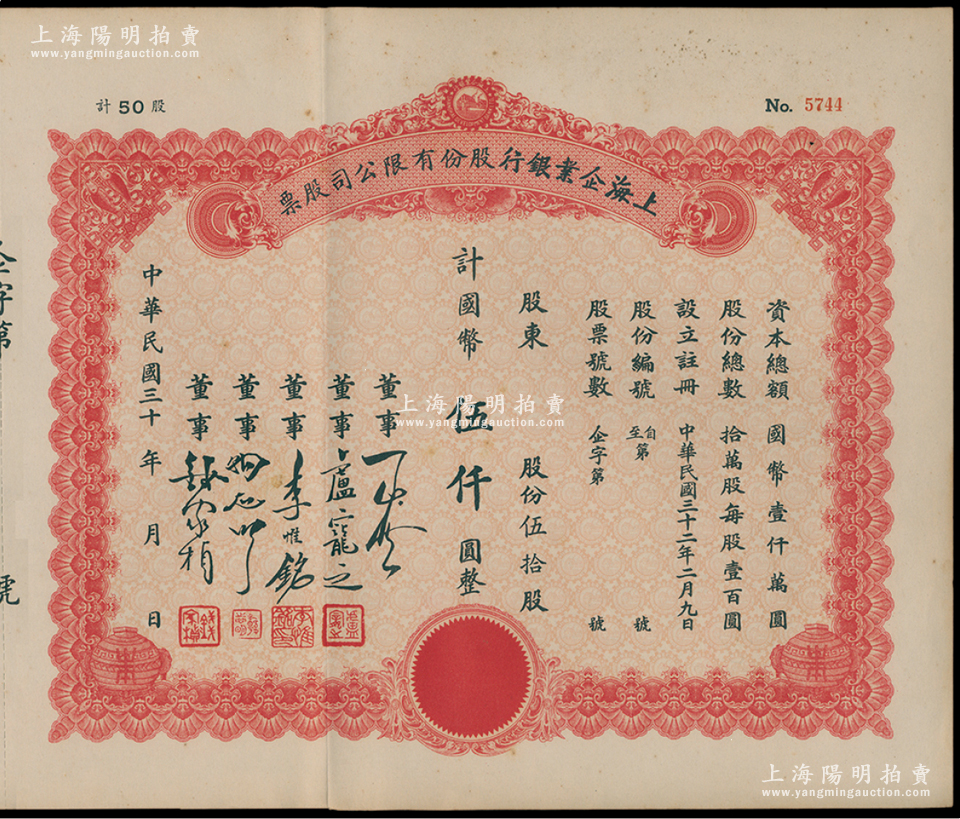 上海陽明拍賣
www.yangmingauction.com
計50股
No. 5744
上海企業銀行股份有限公司股票
資本總額 國幣壹仟萬圓
股份總數 拾萬股每股壹百圓
設立註冊 中華民國三十二年二月九日
股份編號 自至第 號
股票號數 企字第 號
股東 股份伍拾股
計國幣 伍仟圓整
董事
董事 盧寵之
董事 李惟銘
董事
董事 錢家楨
中華民國三十 年 月 日
上海陽明拍賣
www.yangmingauction.com
企字第
號
上海陽明拍賣
www.yangmingauction.com